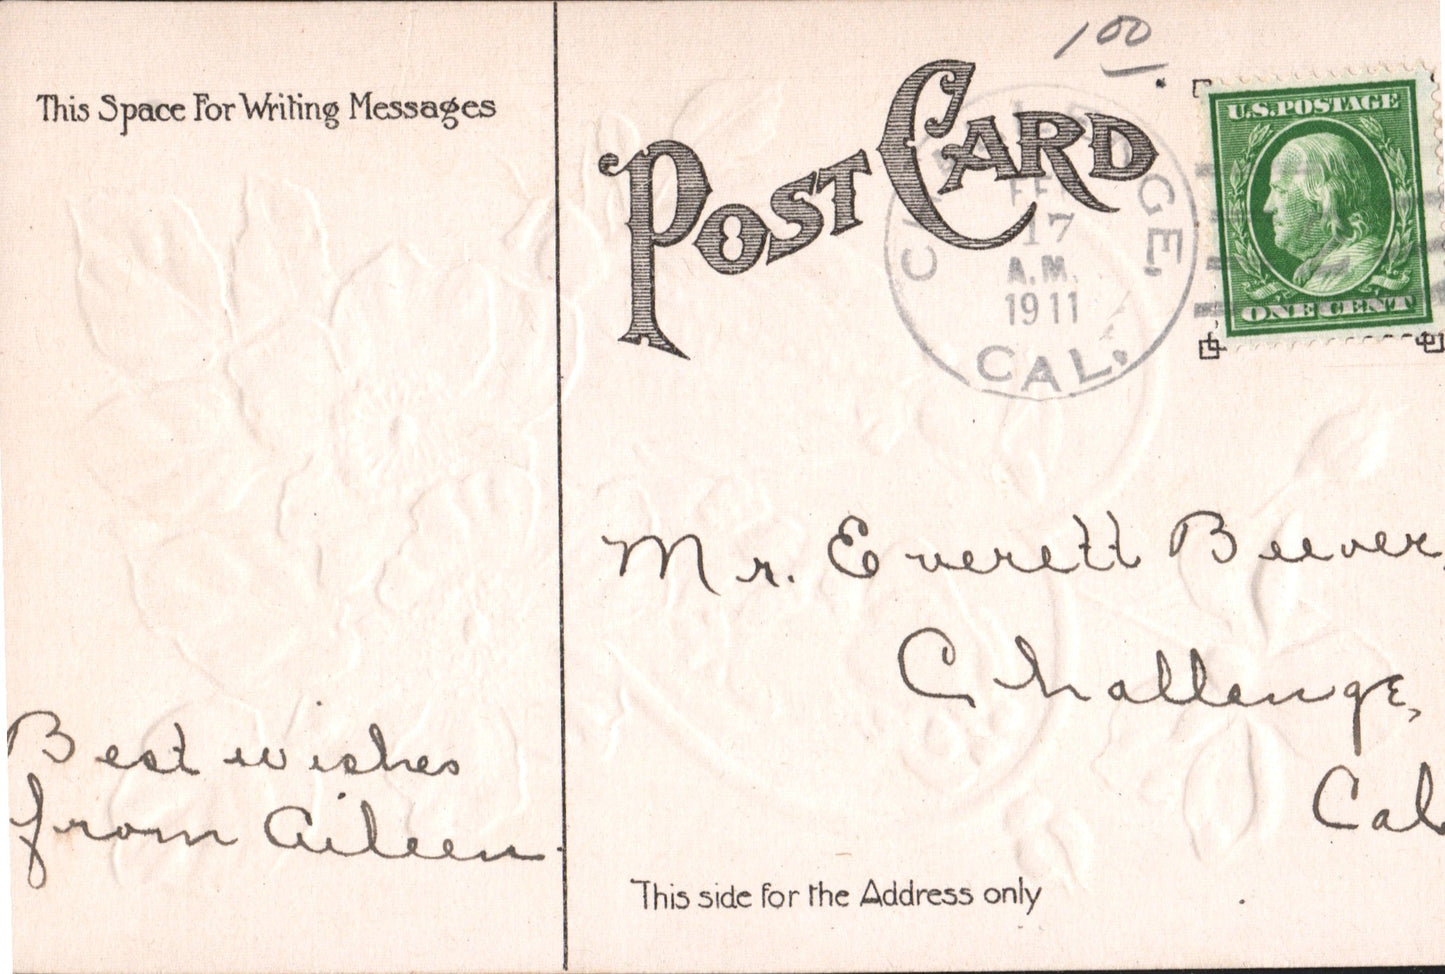 This Space For Writing Messages
POST CARD
1 00
U.S.POSTAGE
ONE CENT
CHALLENGE,
FEB
17
A.M.
1911
CAL.
Mr. Everett Beever,
Challenge,
Cal
Best wishes
from Aileen
This side for the Address only